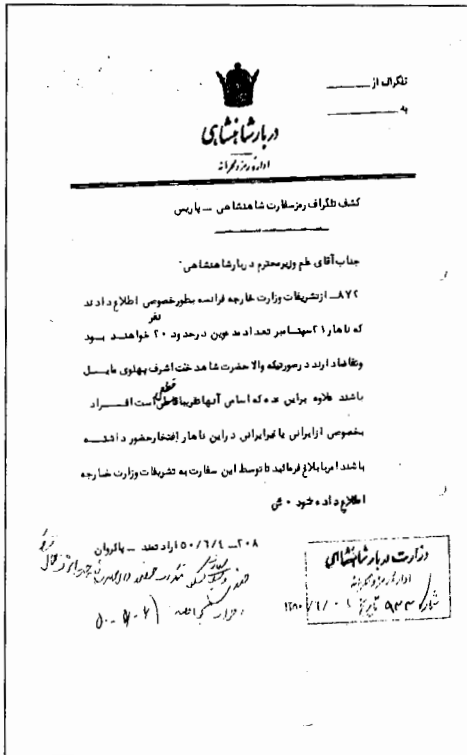 تلگراف از
به
دربار شاهنشاهی
اداره رمز و محرمانه
کشف تلگراف رمز سفارت شاهنشاهی ــ پاریس
جناب آقای علم وزیر محترم دربار شاهنشاهی
۸۷۲ــ از تشریفات وزارت خارجه فرانسه بطور خصوصی اطلاع دادند
نفر
که ناهار ۲۱ سپتامبر تعداد مدعوین در حدود ۲۰ خواهند بود
و تقاضا دارند در صورتیکه والا حضرت شاهدخت اشرف پهلوی مایل
قطعی
باشند علاوه بر این عده که اسامی آنها تقریبا است افراد
بخصوصی از ایرانی یا غیرایرانی در این ناهار افتخار حضور داشته
باشند امر به ابلاغ فرمائید تا توسط این سفارت به تشریفات وزارت خارجه
اطلاع داده شود ۰
۲۰۸ــ ۵۰/۶/۴ ارادتمند ــ پاکروان
وزارت دربار شاهنشاهی
اداره رمز و محرمانه
شماره ۹۳۳ تاریخ